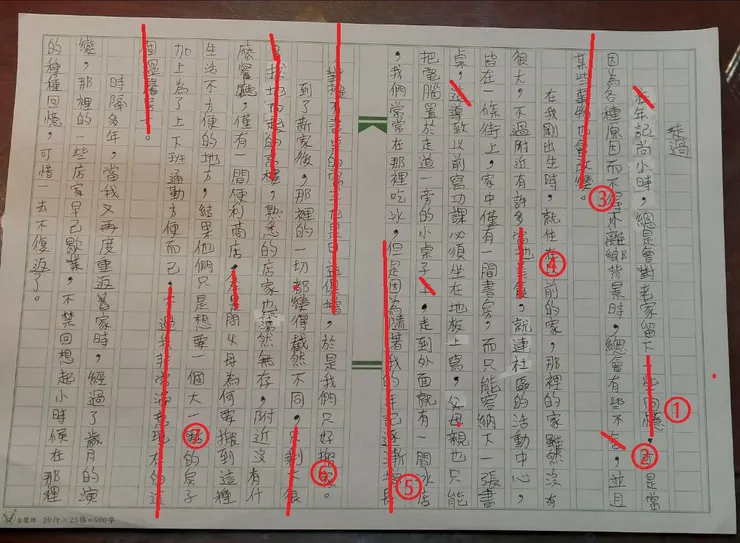 走過
年記尚小時,總是會對老家留下一些回憶,是當
因為各種原因而不得不離鄉背景時,總會有些不,並且
某些事物也會改變。
在我剛出生時,就住在前的家,那裡的家雖然沒有
很大,不過附近有許多當地,就連社區的活動中心,
皆在一條街上,家中僅有一間書房,而只能容納下一張書
桌,導致以前寫功課必須坐在地板上寫,父母親也只能
把電腦置於走道一旁的小桌子上,走到外面就有一間冰店
,我們常常在那裡吃冰,但是因為隨著我的年記逐漸增長
,於是我們只好搬家。
到了新家後,那裡的一切都變得截然不同,只剩不
地而起的高樓,熟悉的店家也蕩然無存,附近沒有什
麼餐廳,僅有一間便利商店,問父母為何要搬到這種
生活不方便的地方,結果他們只是想要一個大一點的房子
加上為了上下班通勤方便而已,不過我非常滿意現在的這
個溫馨
時隔多年,當我又再度重返舊家時,經過了歲月的演
變,那裡的一些店家早已歇業,不禁回想起小時候在那裡
的種種回憶,可惜一去不復返了。
①
②
③
④
⑤
⑥
⑦
20行×25格=500字